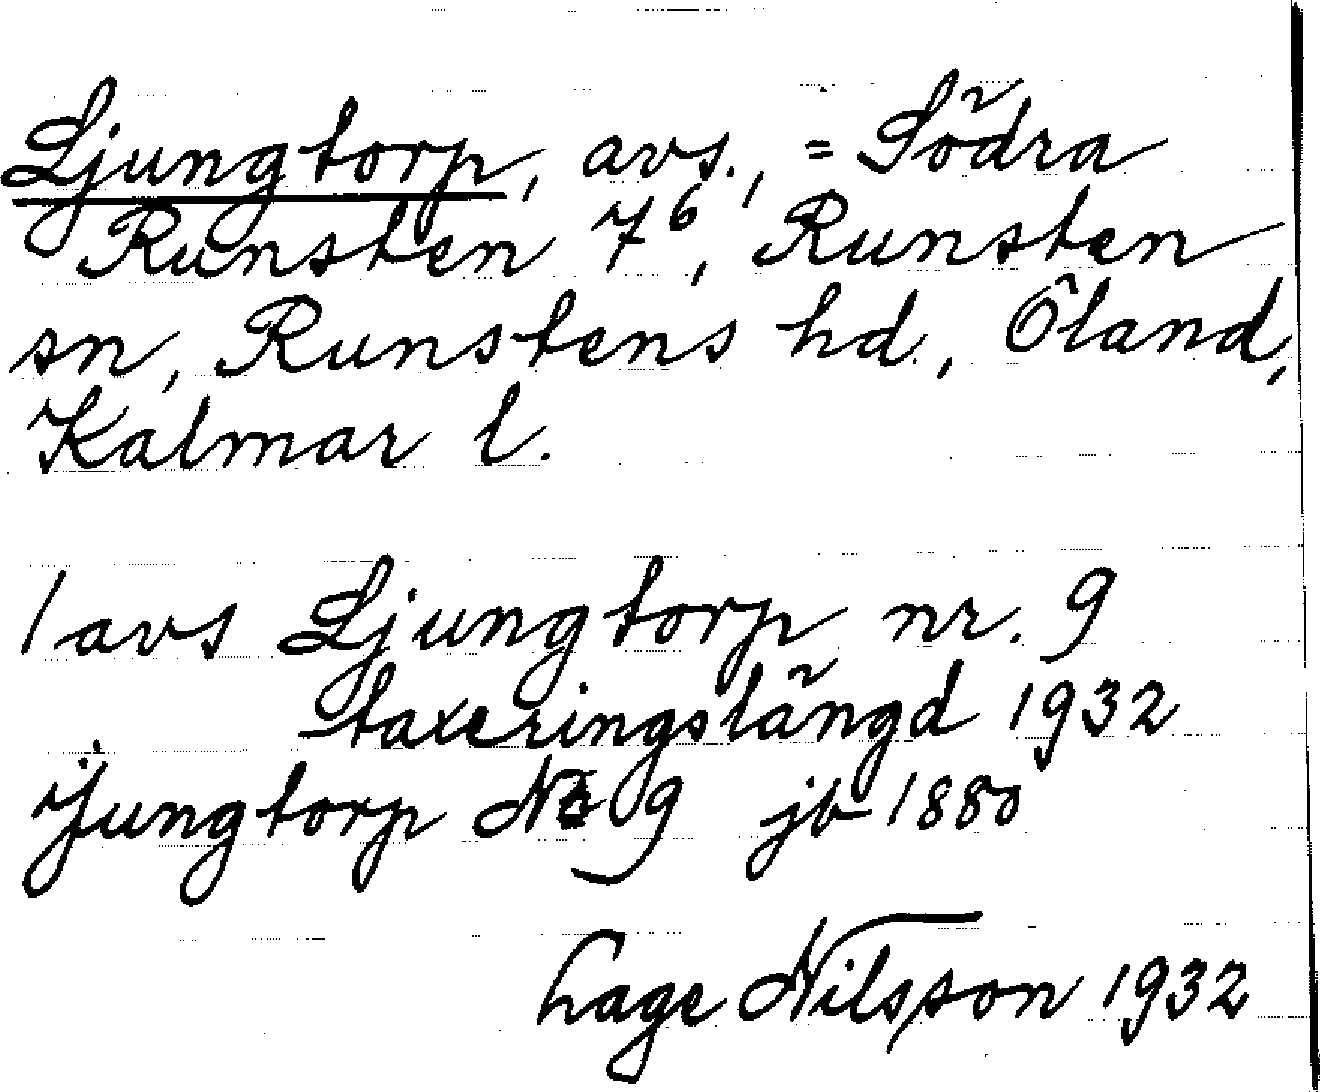 Ljungtorp, avs., = Södra
Runsten 7⁶, Runsten
sn, Runstens hd., Öland,
Kalmar l.
1 avs Ljungtorp nr. 9
taxeringslängd 1932
Jungtorp No 9 jb 1880
Lage Nilsson 1932